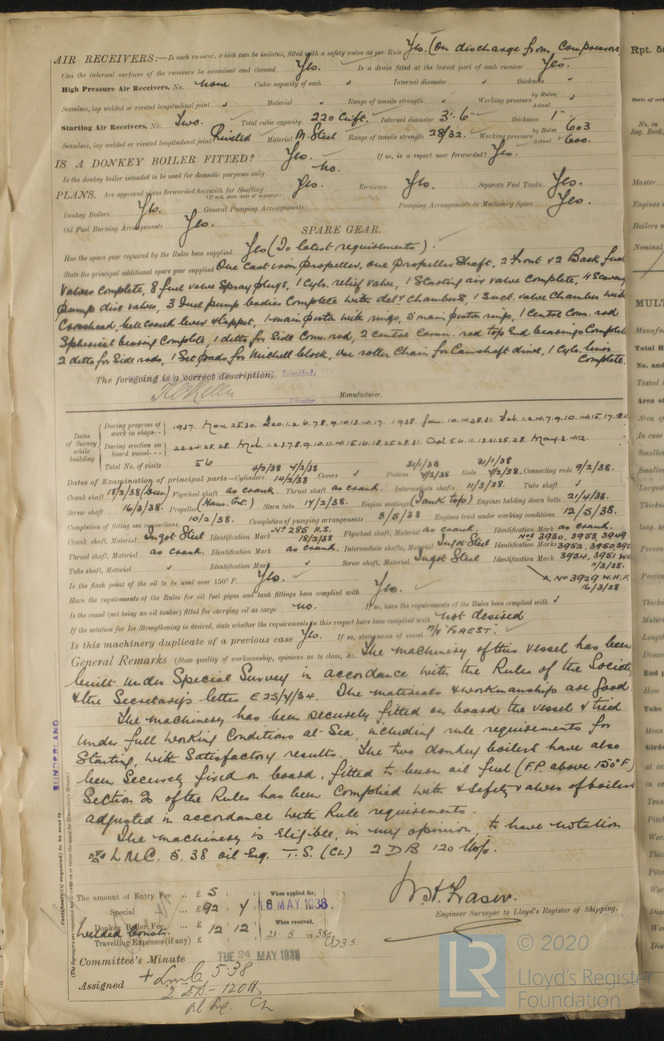 AIR RECEIVERS:—Is each receiver, which can be isolated, fitted with a safety valve as per Rule Yes. (On discharge from Compressors
Can the internal surfaces of the receivers be examined and cleaned Yes. Is a drain fitted at the lowest part of each receiver Yes.
High Pressure Air Receivers, No. none Cubic capacity of each Internal diameter thickness
Seamless, lap welded or riveted longitudinal joint Material Range of tensile strength Working pressure by Rules Actual
Starting Air Receivers, No. Two. Total cubic capacity 220 Cu. ft. Internal diameter 3'-6" thickness 1"
Seamless, lap welded or riveted longitudinal joint Riveted Material M. Steel Range of tensile strength 28/32. Working pressure by Rules 603 Actual 600.
IS A DONKEY BOILER FITTED? Yes. If so, is a report now forwarded? Yes.
Is the donkey boiler intended to be used for domestic purposes only no.
PLANS. Are approved plans forwarded herewith for Shafting Yes. Receivers Yes. Separate Fuel Tanks Yes.
Donkey Boilers Yes. General Pumping Arrangements Pumping Arrangements in Machinery Space Yes.
Oil Fuel Burning Arrangements Yes.
SPARE GEAR.
Has the spare gear required by the Rules been supplied Yes (To latest requirements).
State the principal additional spare gear supplied One cast iron propeller, one propeller shaft, 2 front & 2 Back fuel
valves complete, 8 fuel valve spray plugs, 1 Cyl. relief valve, 1 Starting air valve complete, 4 Scavenge
pump disc valves, 3 Fuel pump bodies complete with del^y chambers, 1 Suct. valve Chamber with
Crosshead, bell crank lever & tappet, 1 main piston with rings, 5 main piston rings, 1 Centre Conn. rod
Spherical bearing complete, 1 ditto for Side Conn. rod, 2 centre Conn. rod top End bearings Complete
2 ditto for Side rods, 1 Set pads for Michell block, One roller Chain for Camshaft drive, 1 Cyl. liner
Complete.
The foregoing is a correct description,
Manufacturer.
Dates of Survey while building
During progress of work in shops-- 1937. Nov. 25.30. Dec. 1.2.6.7.8.9.10.13.14.17. 1938. Jan. 10.14.28.31. Feb. 1.2.4.7.9.10.14.15.17.18.
During erection on board vessel--- 22.24.25.28. Mch. 1.2.3.7.8.9.10.11.14.15.16.18.25.28.31. Apl. 5.6.11.13.21.25.28. May. 3.4.12.
Total No. of visits 56
Dates of Examination of principal parts—Cylinders 4/2/38 7/2/38 14/2/38 Covers Pistons 31/1/38 4/2/38 Rods 31/1/38 4/2/38. Connecting rods 9/2/38.
Crank shaft 18/2/38 Flywheel shaft as crank. Thrust shaft as crank. Intermediate shafts 11/3/38. Tube shaft
Screw shaft 16/3/38. Propeller Stern tube 17/2/38. Engine seatings (Tank tops) Engines holding down bolts 21/4/38.
Completion of fitting sea connections 10/2/38. Completion of pumping arrangements 3/5/38 Engines tried under working conditions 12/5/38.
Crank shaft, Material Ingot Steel Identification Mark No 285 H.S. 18/2/38 Flywheel shaft, Material as crank. Identification Mark as crank.
Thrust shaft, Material as crank. Identification Mark as crank. Intermediate shafts, Material Ingot Steel Identification Marks Nos 3930, 3953, 3949 3952, 3950,
Tube shaft, Material Identification Mark Screw shaft, Material Ingot Steel Identification Mark 3954, 3951 11/3/38.
No 3929 W.H.F. 16/3/38
Is the flash point of the oil to be used over 150° F. Yes.
Have the requirements of the Rules for oil fuel pipes and tank fittings been complied with Yes.
Is the vessel (not being an oil tanker) fitted for carrying oil as cargo no. If so, have the requirements of the Rules been complied with
If the notation for Ice Strengthening is desired, state whether the requirements in this respect have been complied with not desired
Is this machinery duplicate of a previous case Yes. If so, state name of vessel M/V FOREST.
General Remarks (State quality of workmanship, opinions as to class, &c. The machinery of this vessel has been
built under Special Survey in accordance with the Rules of the Society
& the Secretary's letter E 25/4/34. The materials & workmanship are good.
The machinery has been securely fitted on board the vessel & tried
under full working conditions at Sea, including rule requirements for
Starting, with Satisfactory results. The two donkey boilers have also
been Securely fixed on board, fitted to burn oil fuel (F.P. above 150°F.)
Section 20 of the Rules has been Complied with & Safety valves of boilers
adjusted in accordance with Rule requirements.
The machinery is eligible, in my opinion, to have notation
L M C. 5. 38 oil Eng. T.S. (CL) 2 D B 120 lbs.
The amount of Entry Fee .. £ 5
Special .. £ 92 4
Donkey Boiler Fee .. £ 12 12
Welded Const.
Travelling Expenses (if any) £
When applied for, 18 MAY 1938
When received, 21. 5. 1938
W. H. Fraser.
Engineer Surveyor to Lloyd's Register of Shipping.
Committee's Minute TUE 24 MAY 1938
Assigned + LMC 5.38
2 DB - 120 lb
Oil Eng. CL
SUNDERLAND
© 2020
LR
Lloyd's Register
Foundation
Rpt. 5
No. in
Reg. Book.
Master
Engines
Boilers
Nominal
MULT
Manufa
Total H
No. and
Tested
Area of
In case
Smalles
Largest